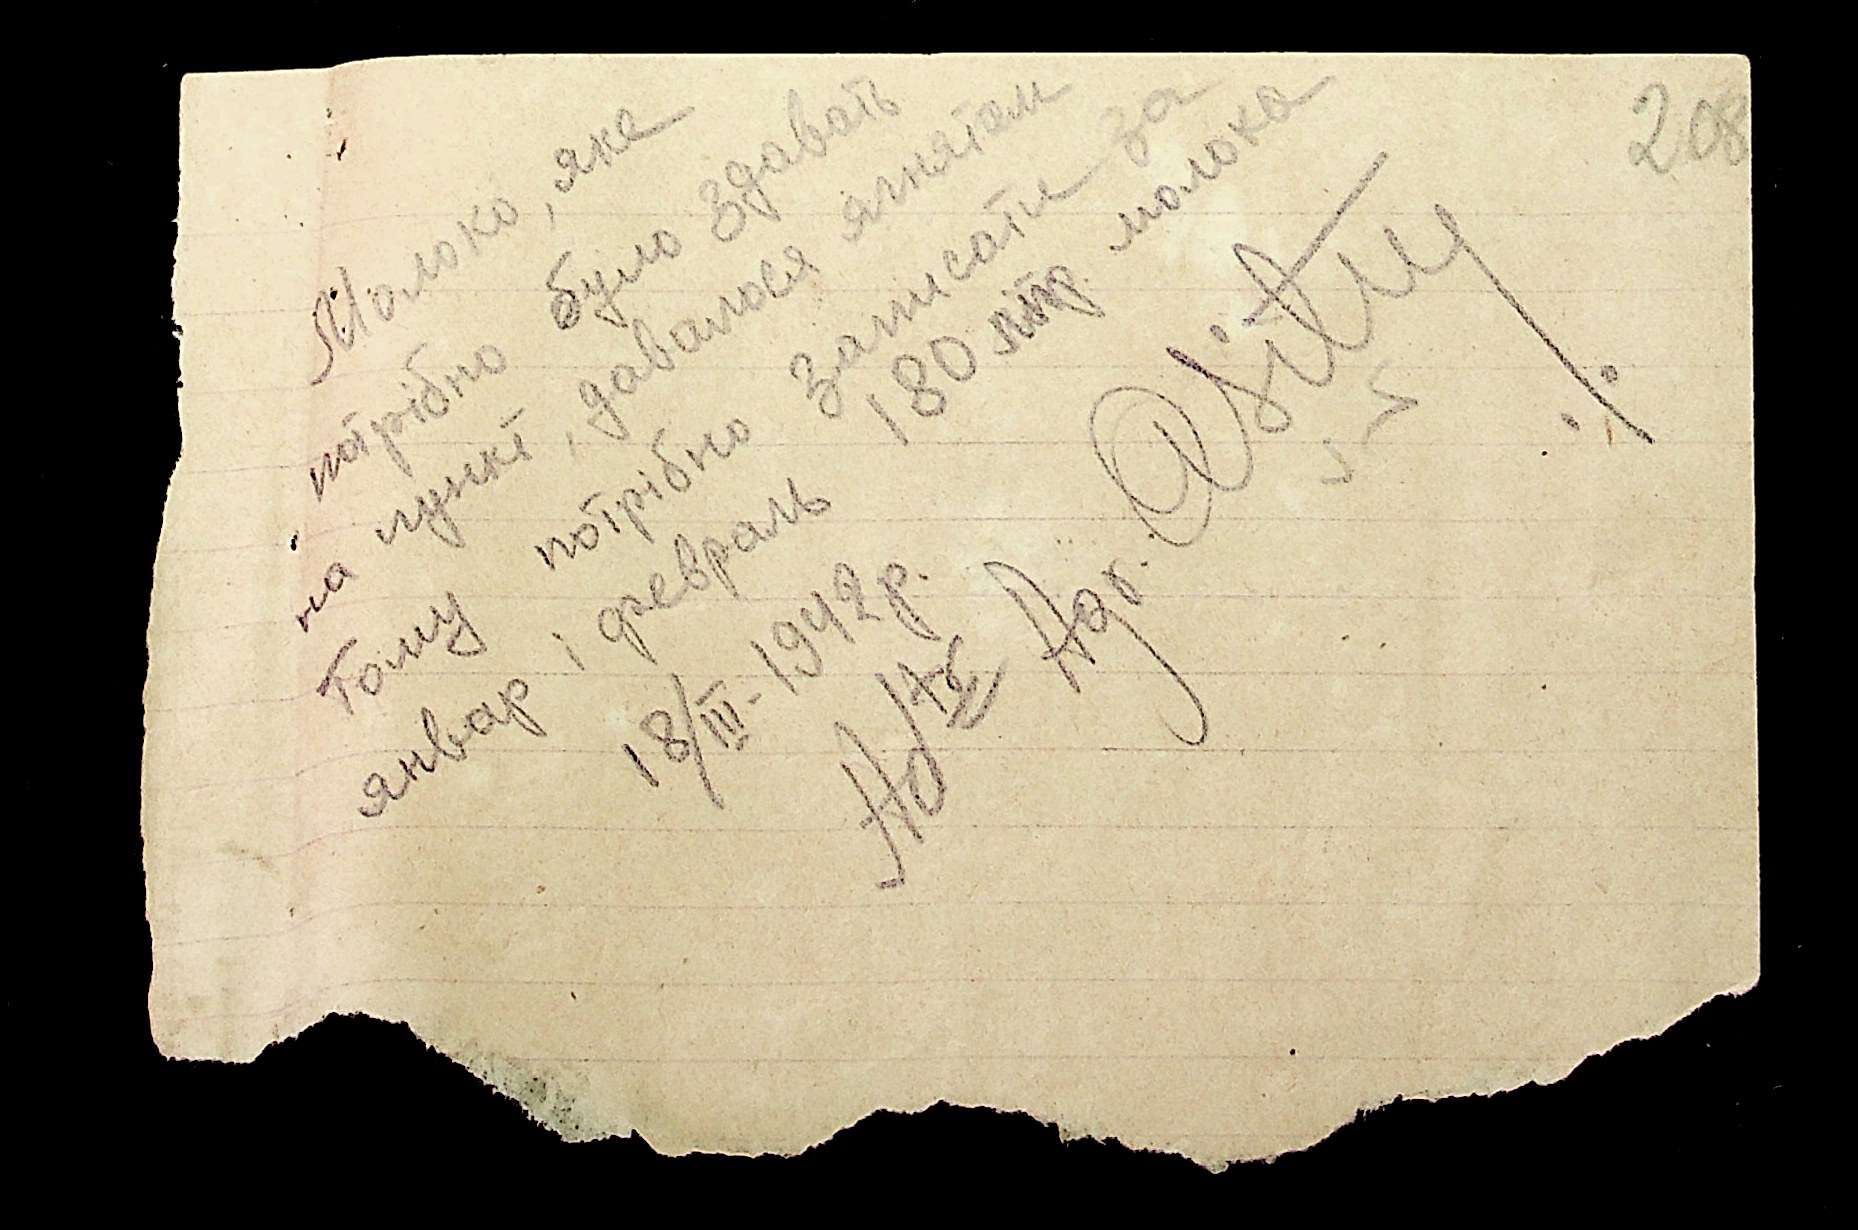 208
Молоко, яке
потрібно було здавать
на пункт, давалося ягнятам
Тому потрібно записати за
январ і февраль 180 літр. молока
18/III-1942 р.
Agr.